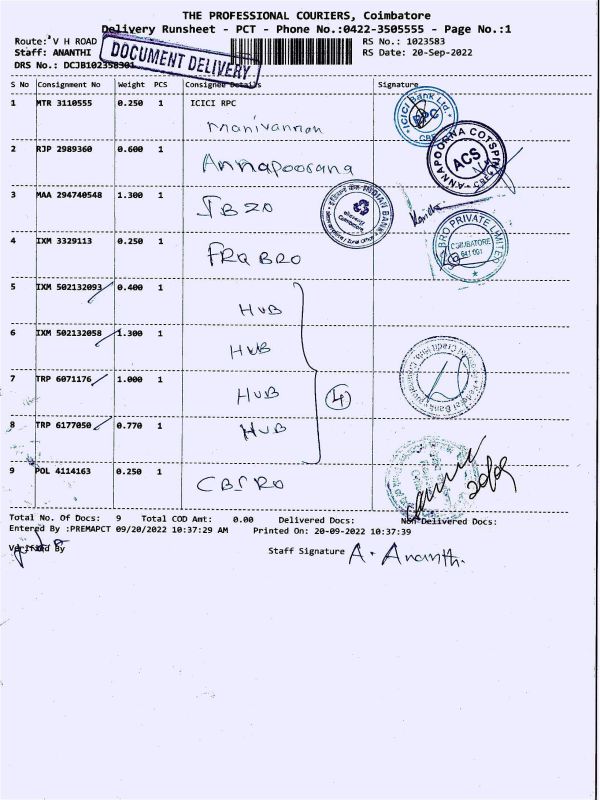 THE PROFESSIONAL COURIERS, Coimbatore
Delivery Runsheet - PCT - Phone No.:0422-3505555 - Page No.:1
Route: V H ROAD
Staff: ANANTHI
DRS No.: DCJB102358301
DOCUMENT DELIVERY
RS No.: 1023583
RS Date: 20-Sep-2022
S No Consignment No Weight PCS Consignee Details Signature
1 MTR 3110555 0.250 1 ICICI RPC
Manivannan
ICICI Bank Ltd.
RPC
CBE
2 RJP 2989360 0.600 1 Annapoorana
ANNAPOORNA COTSPIN
ACS
3 MAA 294740548 1.300 1 IBZO
INDIAN BANK
Coimbatore
Zonal Office
4 IXM 3329113 0.250 1 FRQ BRO
BRO PRIVATE LIMITED
COIMBATORE
641 001
5 IXM 502132093 0.400 1 HUB
6 IXM 502132058 1.300 1 HUB
7 TRP 6071176 1.000 1 HUB
4
8 TRP 6177050 0.770 1 HUB
9 POL 4114163 0.250 1 CBSRO
20/09
Total No. Of Docs: 9 Total COD Amt: 0.00 Delivered Docs: Non-Delivered Docs:
Entered By :PREMAPCT 09/20/2022 10:37:29 AM Printed On: 20-09-2022 10:37:39
Verified By Staff Signature A. Ananthi.